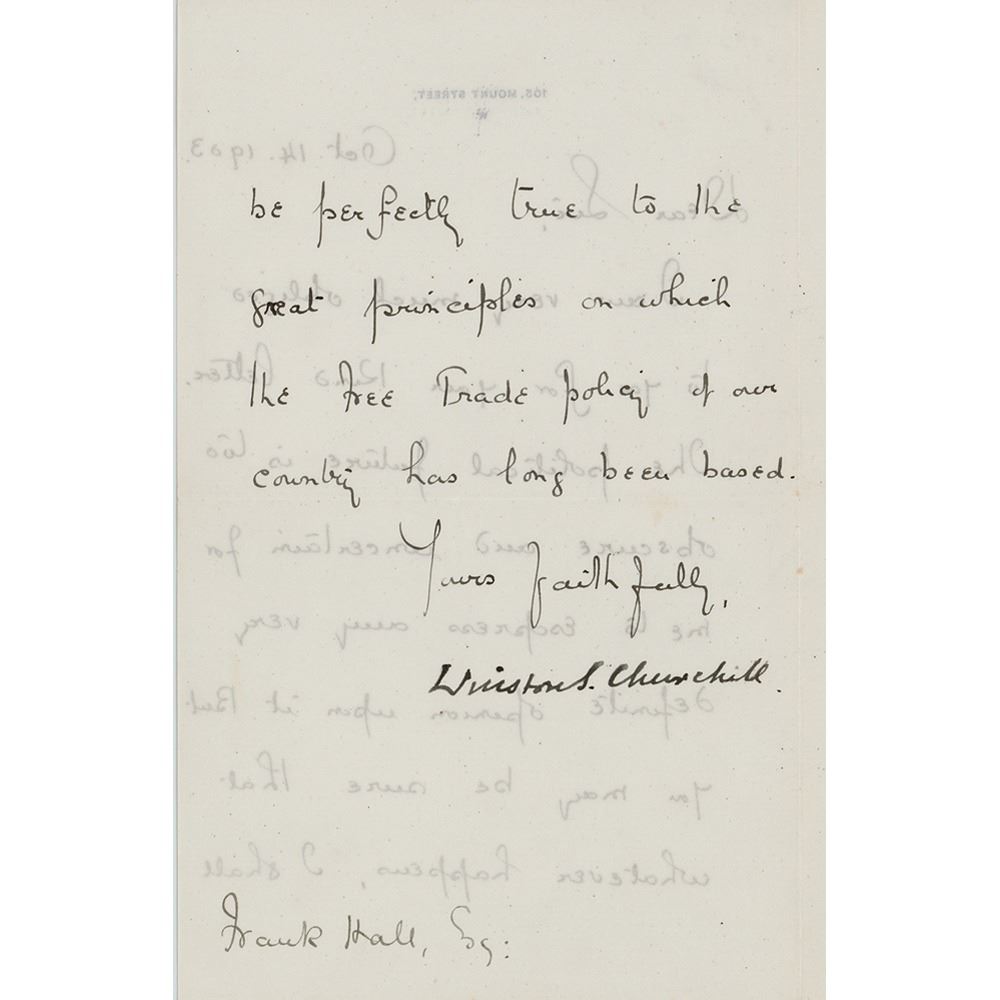 be perfectly true to the
great principles on which
the Free Trade policy of our
country has long been based.
Yours faithfully,
Winston S. Churchill.
Frank Hall, Esq: